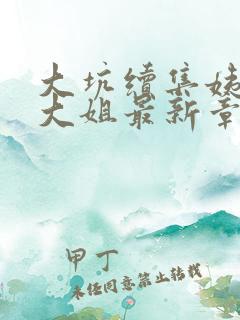 大坑续集姨
大姐最新章
甲丁
未经同意禁止转载